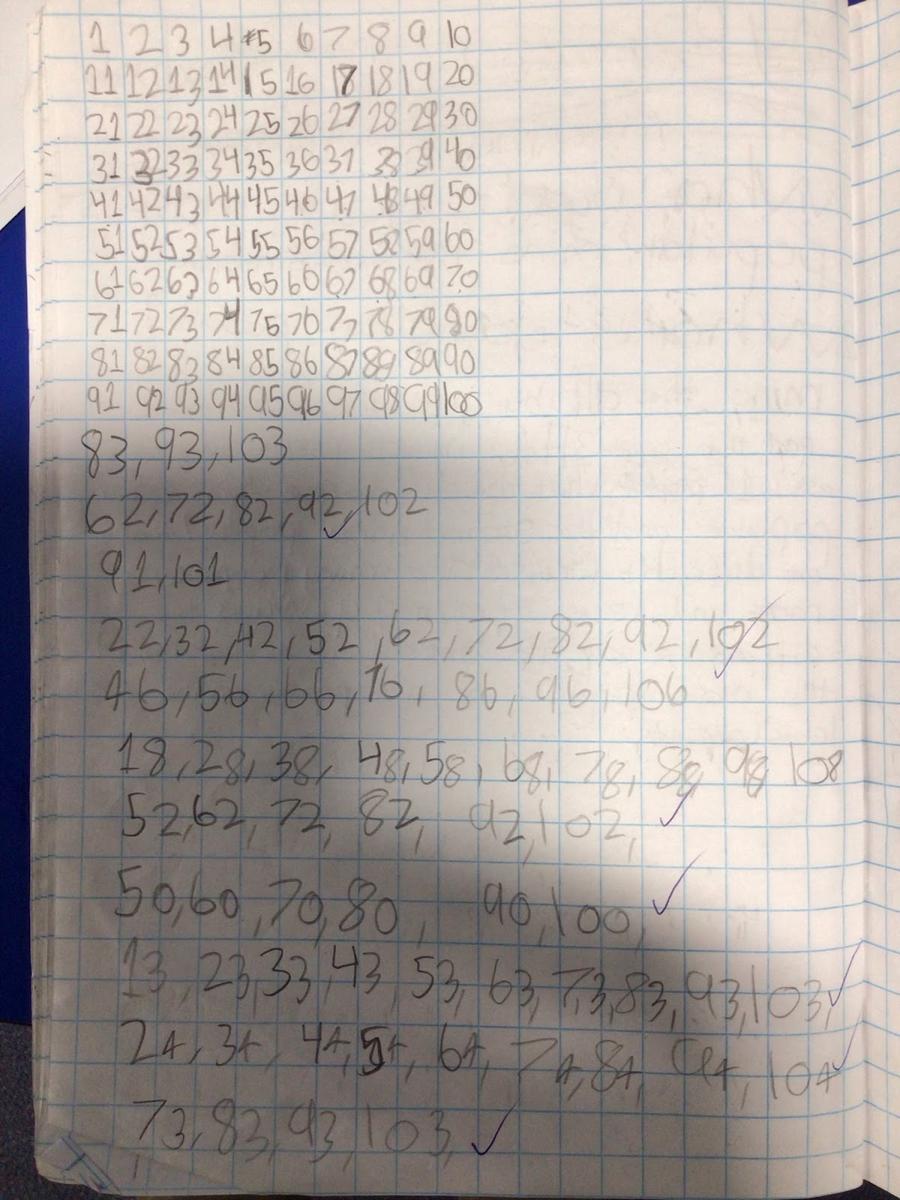 1 2 3 4 5 6 7 8 9 10
11 12 13 14 15 16 17 18 19 20
21 22 23 24 25 26 27 28 29 30
31 32 33 34 35 36 37 38 39 40
41 42 43 44 45 46 47 48 49 50
51 52 53 54 55 56 57 58 59 60
61 62 63 64 65 66 67 68 69 70
71 72 73 74 75 76 77 78 79 80
81 82 83 84 85 86 87 88 89 90
91 92 93 94 95 96 97 98 99 100
83, 93, 103
62, 72, 82, 92, 102
91, 101
22, 32, 42, 52, 62, 72, 82, 92, 102
46, 56, 66, 76, 86, 96, 106
18, 28, 38, 48, 58, 68, 78, 88, 98, 108
52, 62, 72, 82, 92, 102,
50, 60, 70, 80, 90, 100,
13, 23, 33, 43, 53, 63, 73, 83, 93, 103,
24, 34, 44, 54, 64, 74, 84, 94, 104
73, 83, 93, 103,